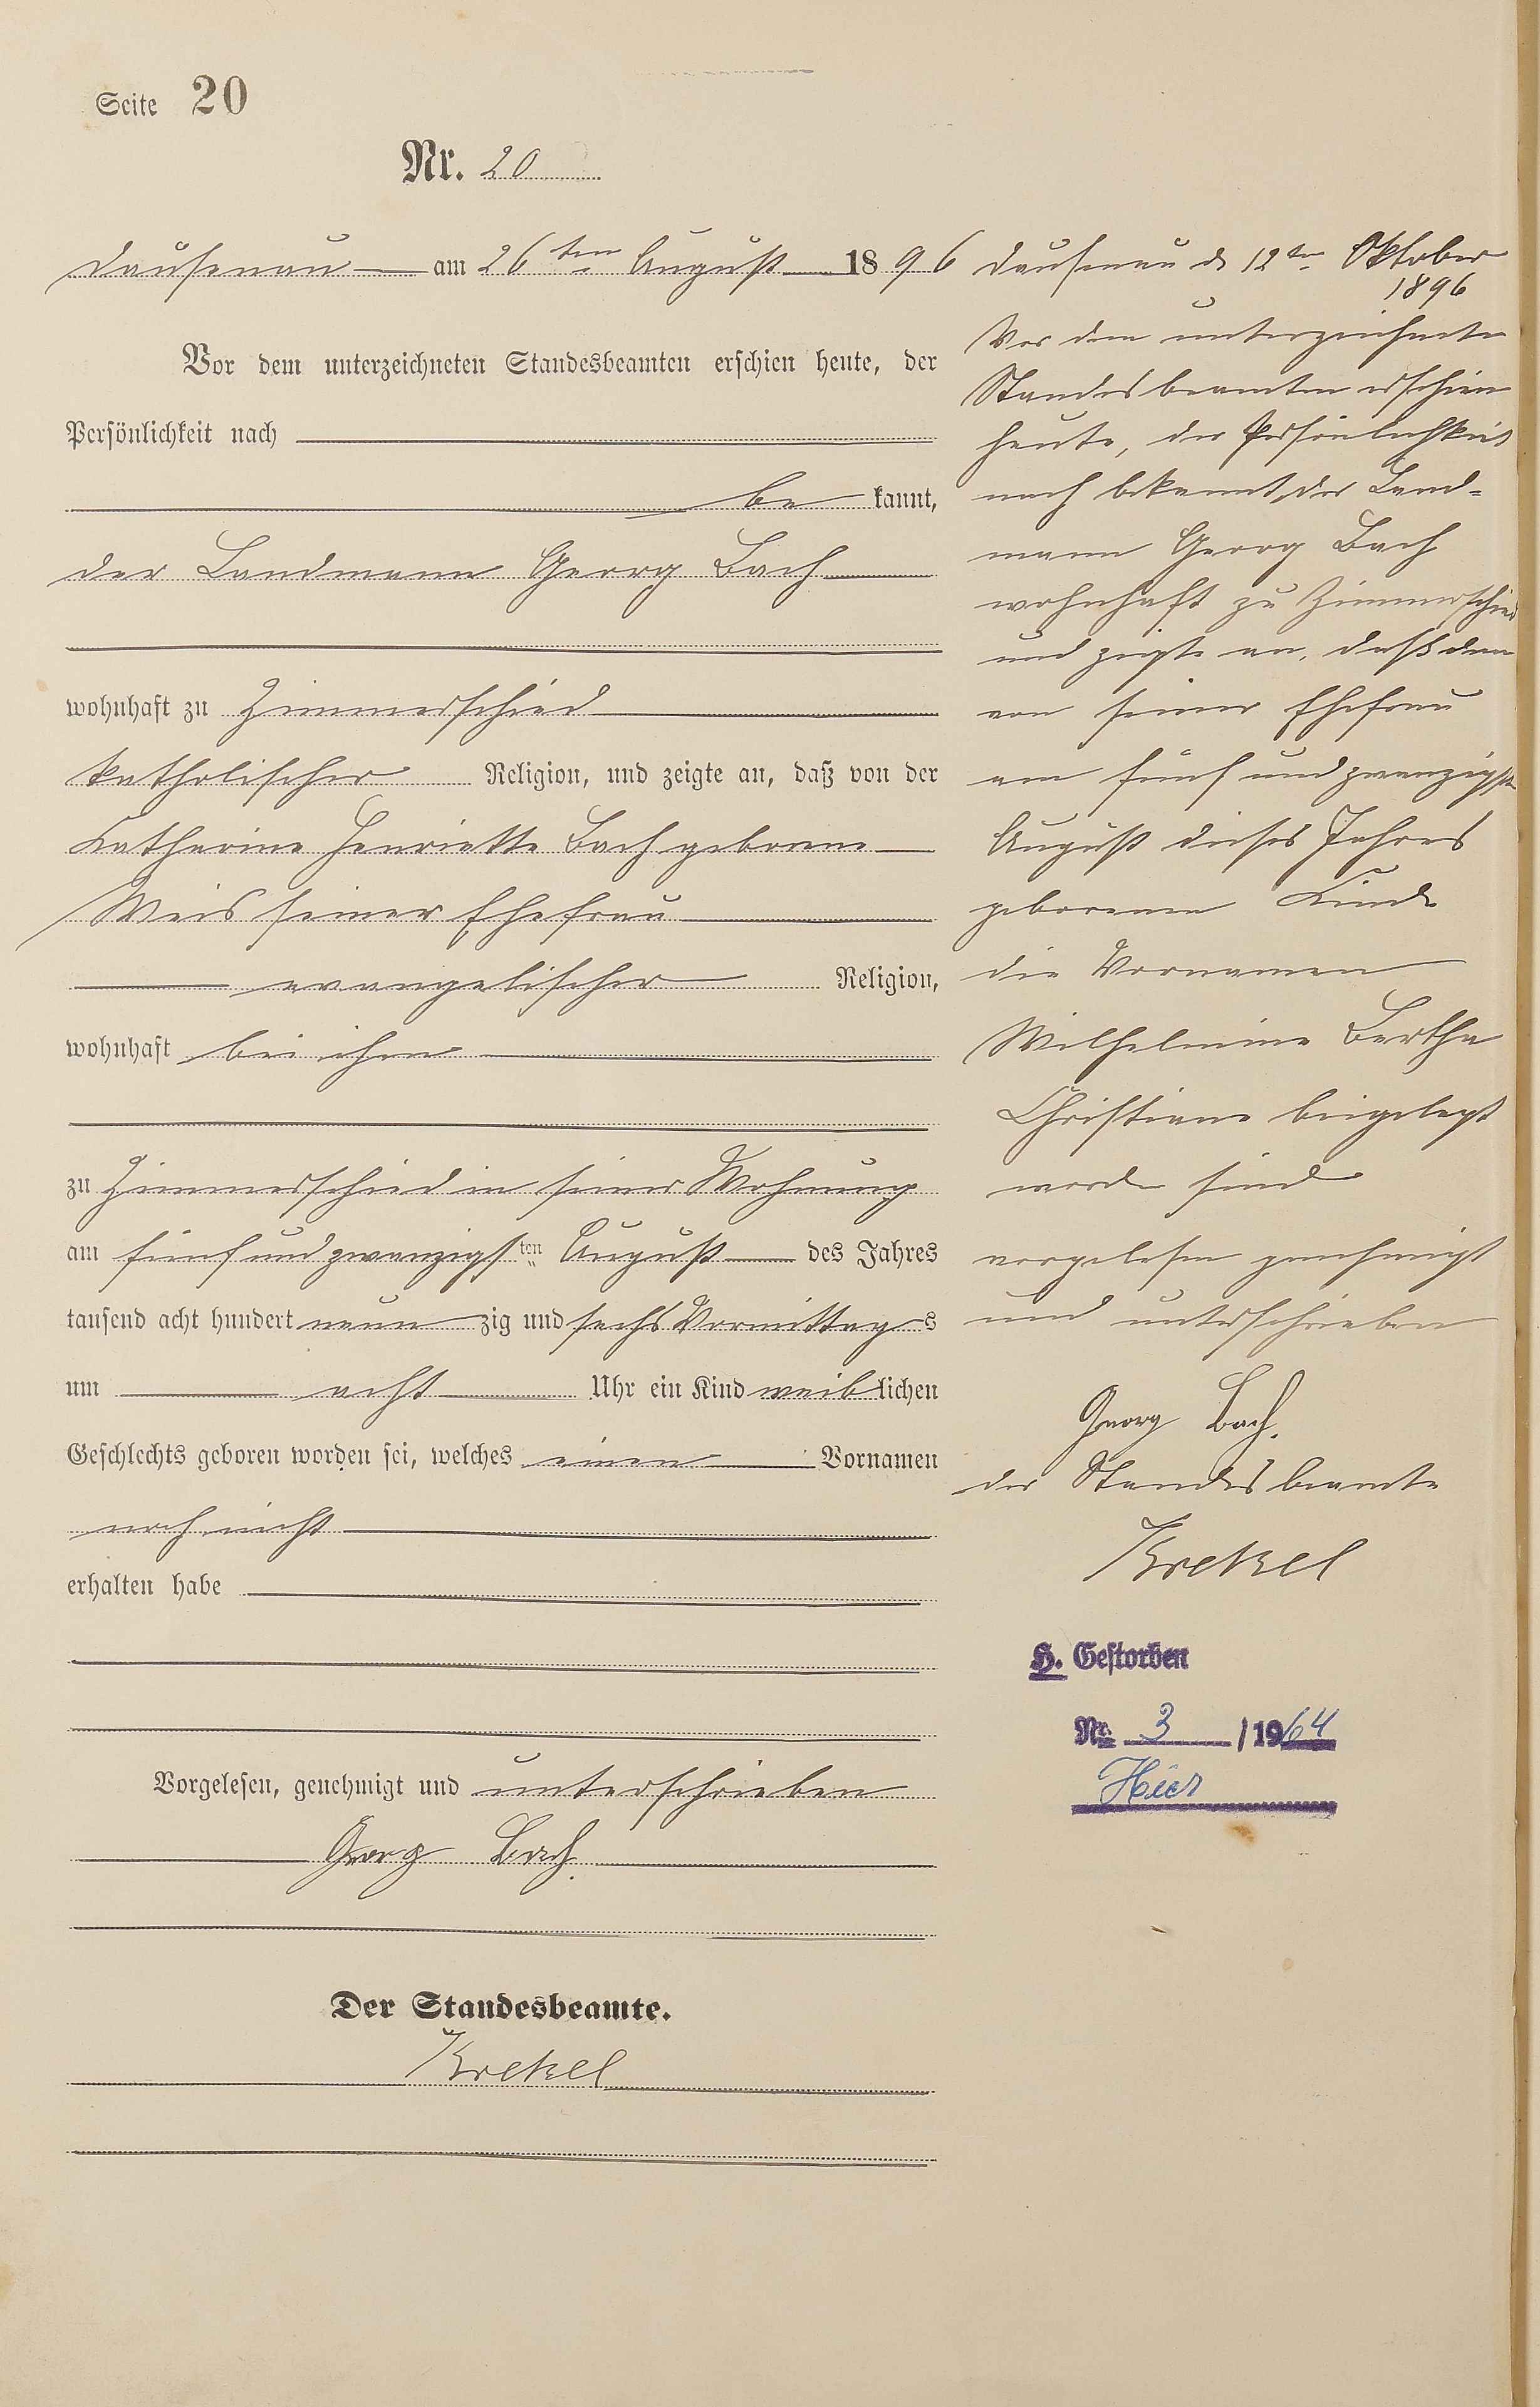 Seite 20
Nr. 20
Dausenau am 26ten August 1896
Vor dem unterzeichneten Standesbeamten erschien heute, der
Persönlichkeit nach
be kannt,
der Landmann Georg Bach
wohnhaft zu Zimmerschied
katholischer Religion, und zeigte an, daß von der
Katharine Henriette Bach geborene
Weis seiner Ehefrau
evangelischer Religion,
wohnhaft bei ihm
zu Zimmerschied in seiner Wohnung
am fünf und zwanzigsten August des Jahres
tausend acht hundert neun zig und sechs Vormittags
um acht Uhr ein Kind weiblichen
Geschlechts geboren worden sei, welches einen Vornamen
noch nicht
erhalten habe
Vorgelesen, genehmigt und unterschrieben
Georg Bach.
Der Standesbeamte.
Krekel
Dausenau d 12ten Oktober
1896
Vor dem unterzeichneten
Standesbeamten erschien
heute, der Persönlichkeit
nach bekannt, der Land-
mann Georg Bach
wohnhaft zu Zimmerschied
und zeigte an, daß dem
von seiner Ehefrau
am fünf und zwanzigsten
August dieses Jahres
geborenen Kinde
die Vornamen
Wilhelmine Bertha
Christiane beigelegt
worden sind
vorgelesen genehmigt
und unterschrieben
Georg Bach.
der Standesbeamte
Krekel
H. Gestorben
Nr. 3 /1964
Hier